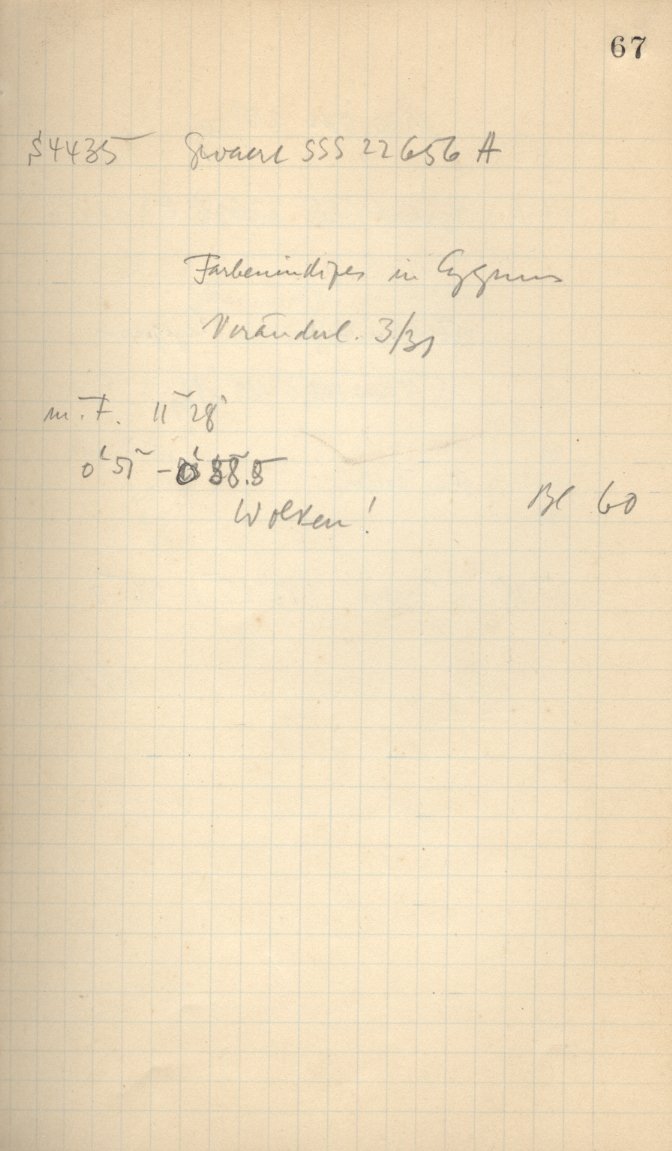 67
S4435 Gevaert SSS 22656 A
Farbenindizes in Cygnus
Veränderl. 3/31
m. F. 11ᵐ 28ˢ
0ʰ 51ᵐ – 0ʰ 58ᵐ.5
Wolken!
Bl 60